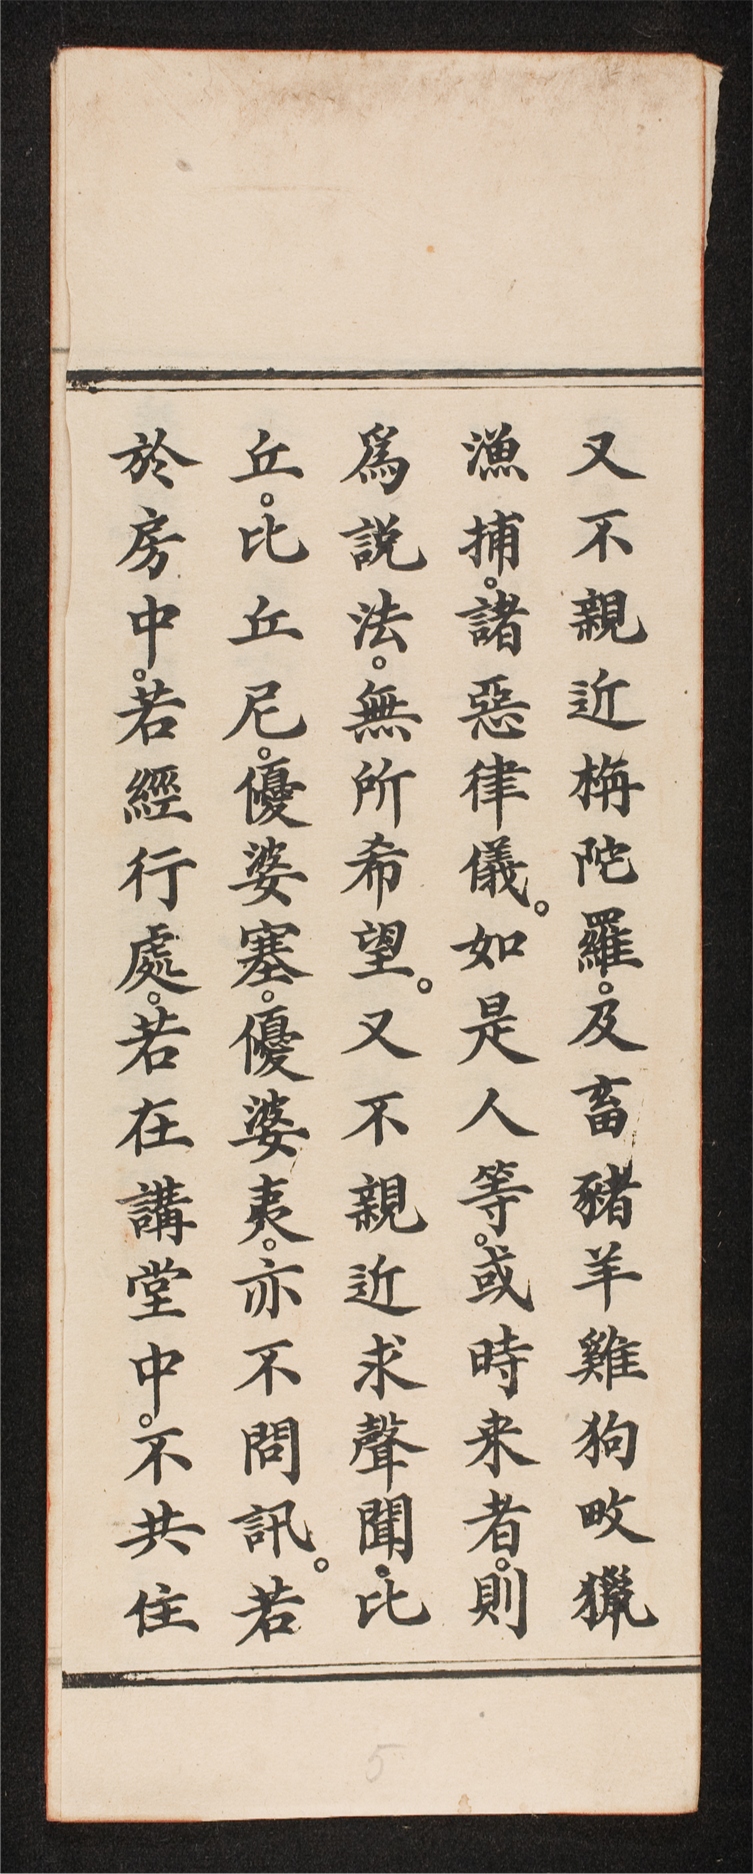 又不親近栴陀羅。及畜豬羊雞狗畋獵
漁捕。諸惡律儀。如是人等。或時来者。則
爲説法。無所希望。又不親近求聲聞。比
丘。比丘尼。優婆塞。優婆夷。亦不問訊。若
於房中。若經行處。若在講堂中。不共住
5